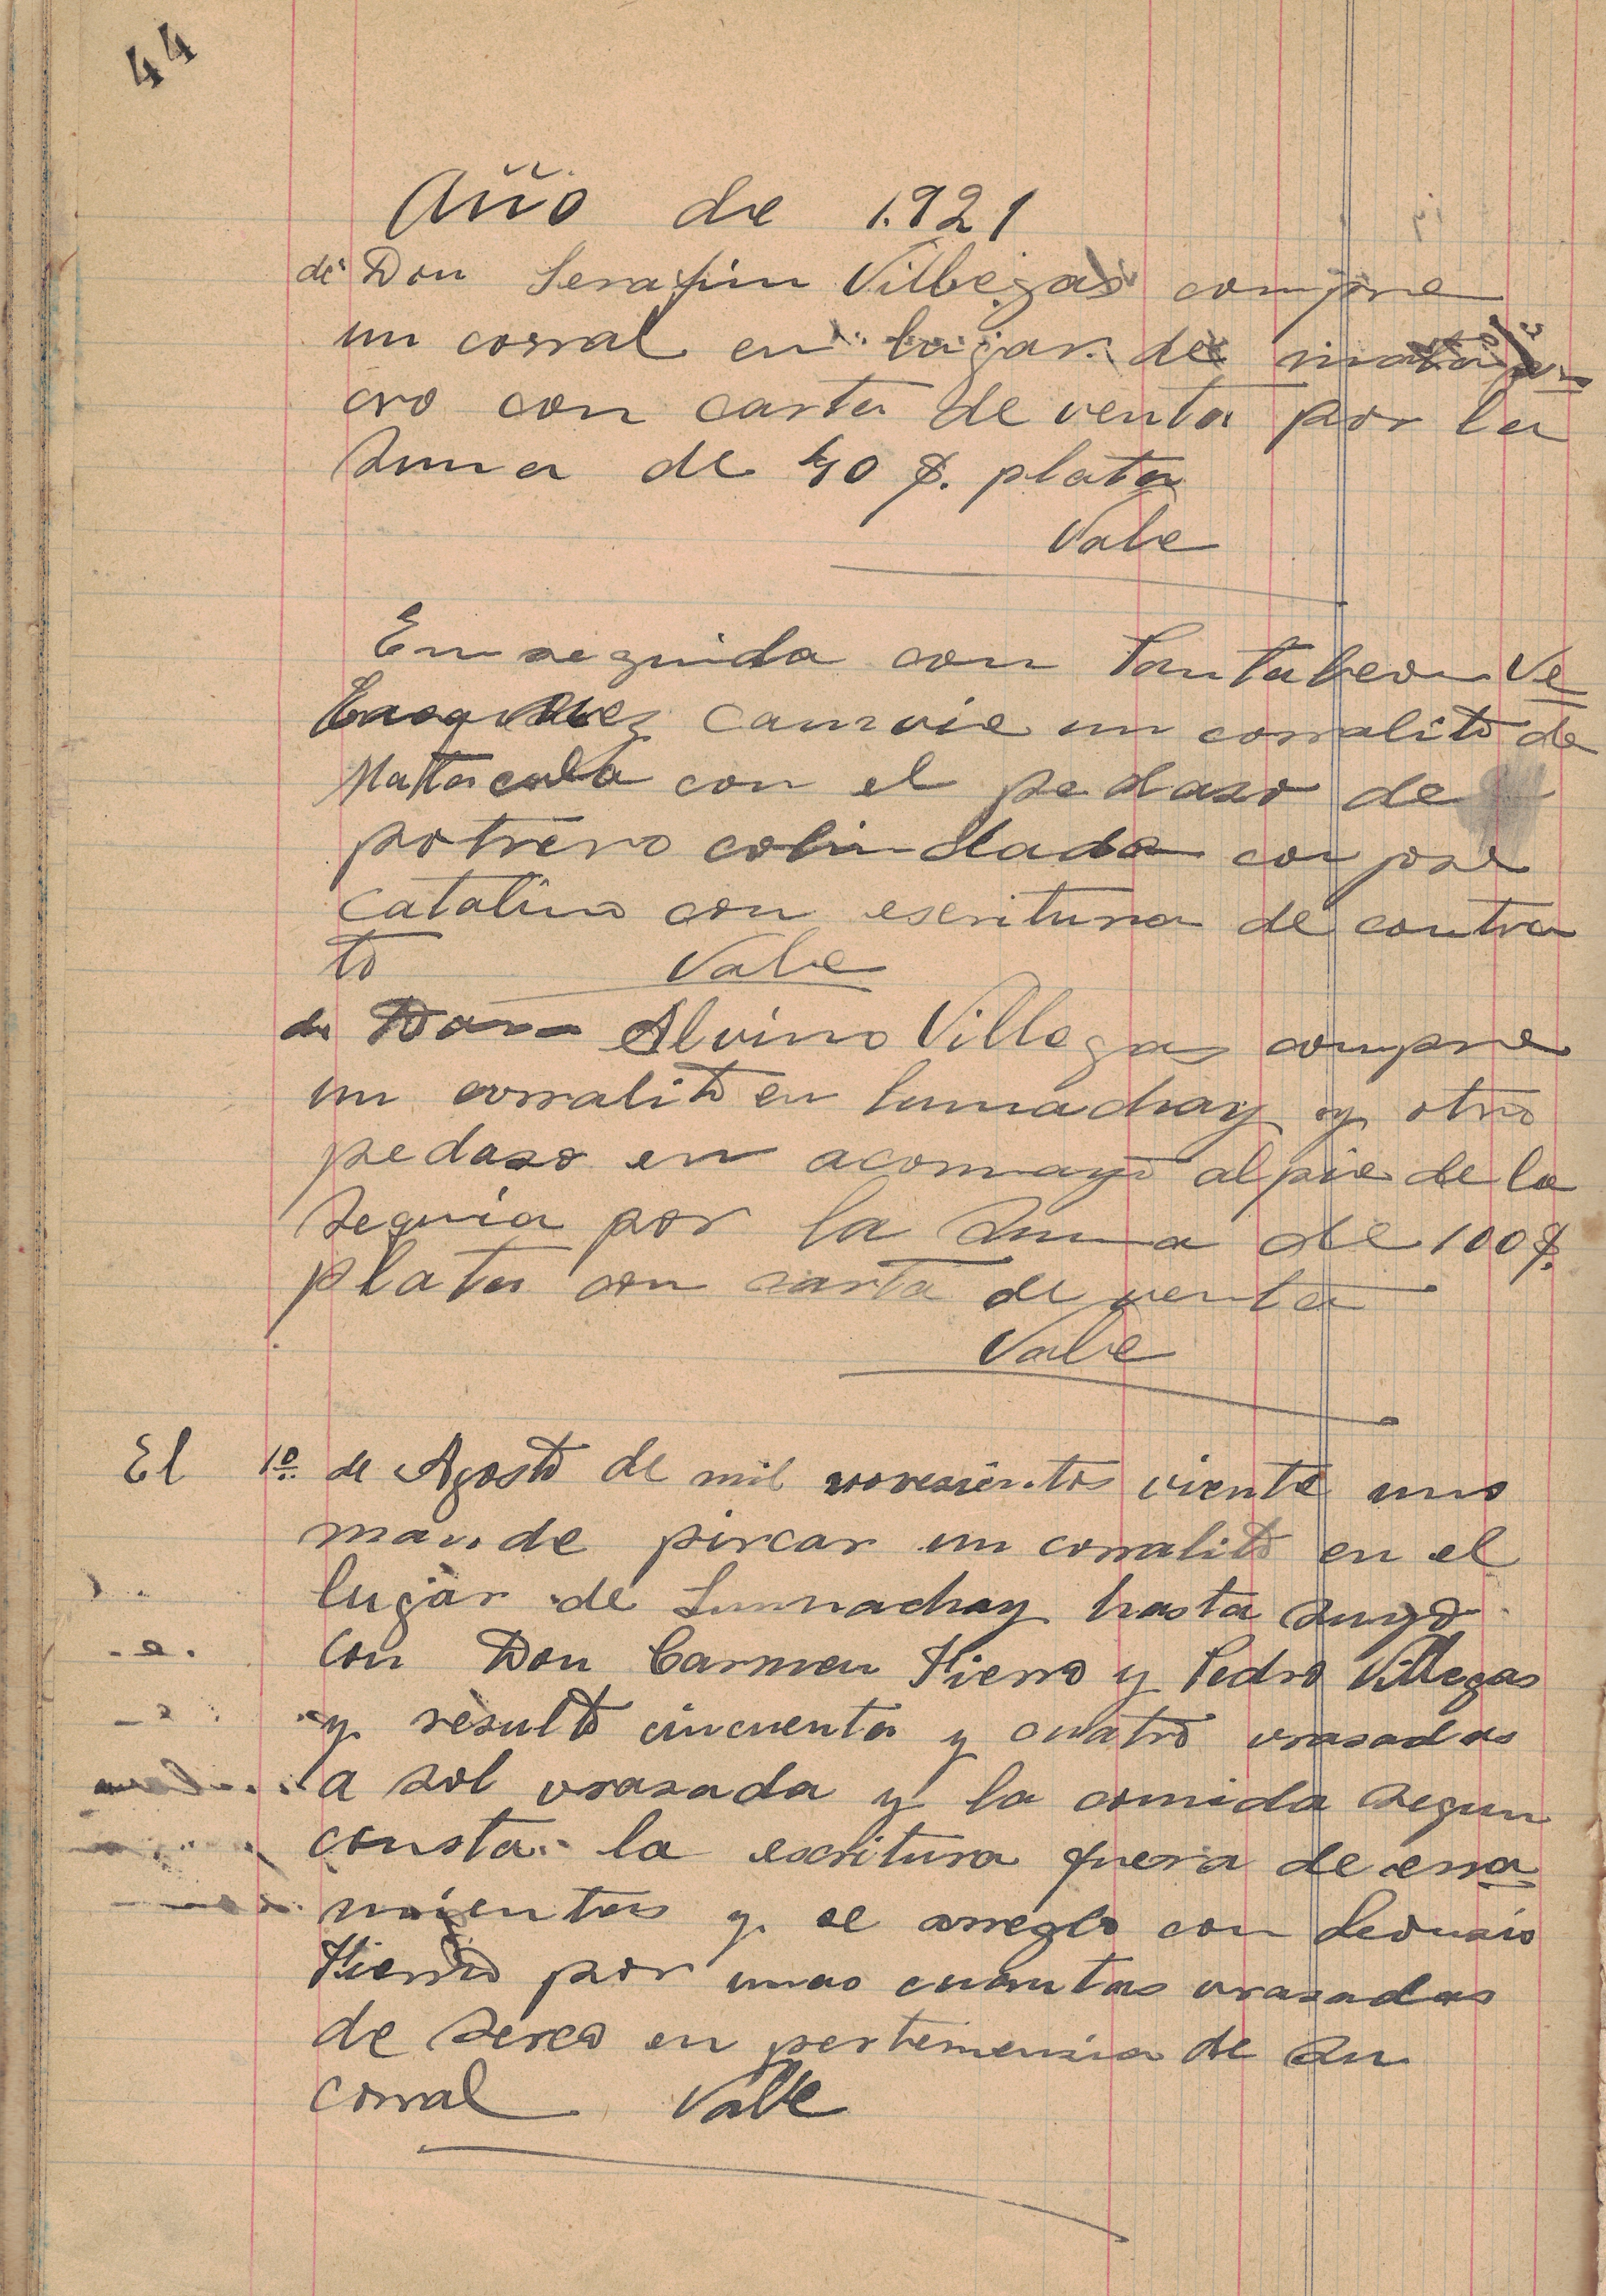 44
Año de 1.921
de Don Serafin Villegas compre
un corral en lugar de
cro con carta de venta por la
suma de 40 $. plata
Vale
Enseguida con Pantaleon Ve
camvie un corralito de
con el pedaso de
potrero colindada con jose
Catalino con escritura de contra
to Vale
de Don Alvino Villegas compre
un corralito en lumachay y otro
pedaso en acomayo al pie de la
sequia por la suma de 100 $.
plata con carta de venta
Vale
El 1º. de Agosto de mil novesientos viente uno
mande pircar un corralito en el
lugar de Lumachay hasta suyo
con Don Carmen Fierro y Pedro Villegas
y resulto cincuenta y cuatro vrasadas
a sol vrasada y la comida segun
consta la escritura fuera de erra
mientas y se arreglo con Leonsio
Fierro por unas cuantas vrasadas
de serco en pertenensia de su
corral Valle